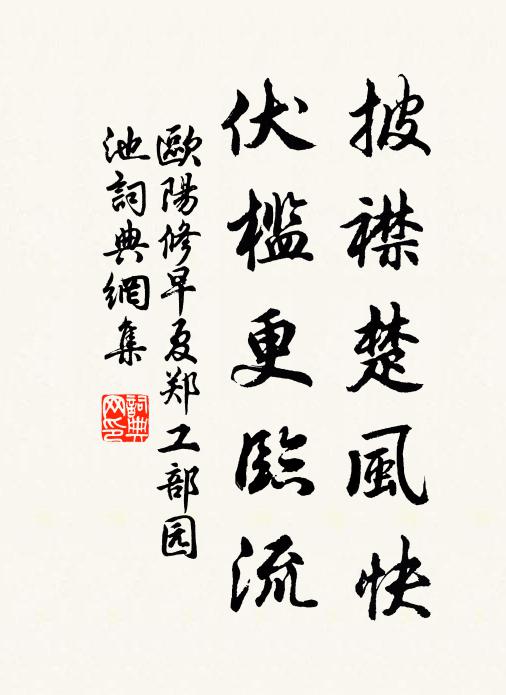 披襟楚風快
伏檻更臨流
歐陽修早夏郑工部园
池詞典網集
詞典
网印